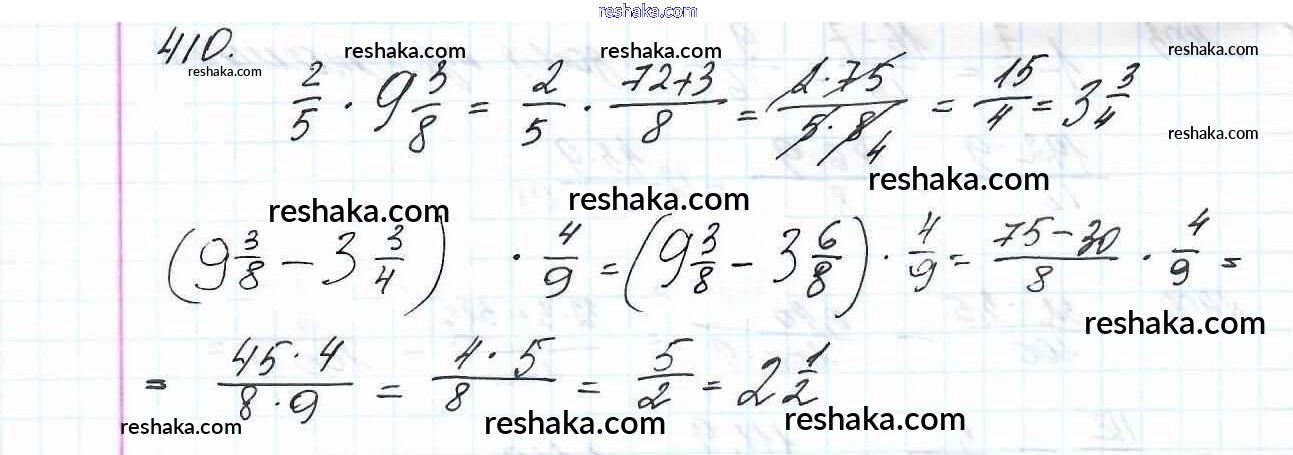 reshaka.com
410.
reshaka.com reshaka.com reshaka.com reshaka.com
2/5 · 9 3/8 = 2/5 · (72+3)/8 = (2·75)/(5·8) 4 = 15/4 = 3 3/4
reshaka.com
reshaka.com reshaka.com reshaka.com
(9 3/8 − 3 3/4) · 4/9 = (9 3/8 − 3 6/8) · 4/9 = (75−30)/8 · 4/9 =
reshaka.com
= (45·4)/(8·9) = (4·5)/8 = 5/2 = 2 1/2
reshaka.com reshaka.com reshaka.com